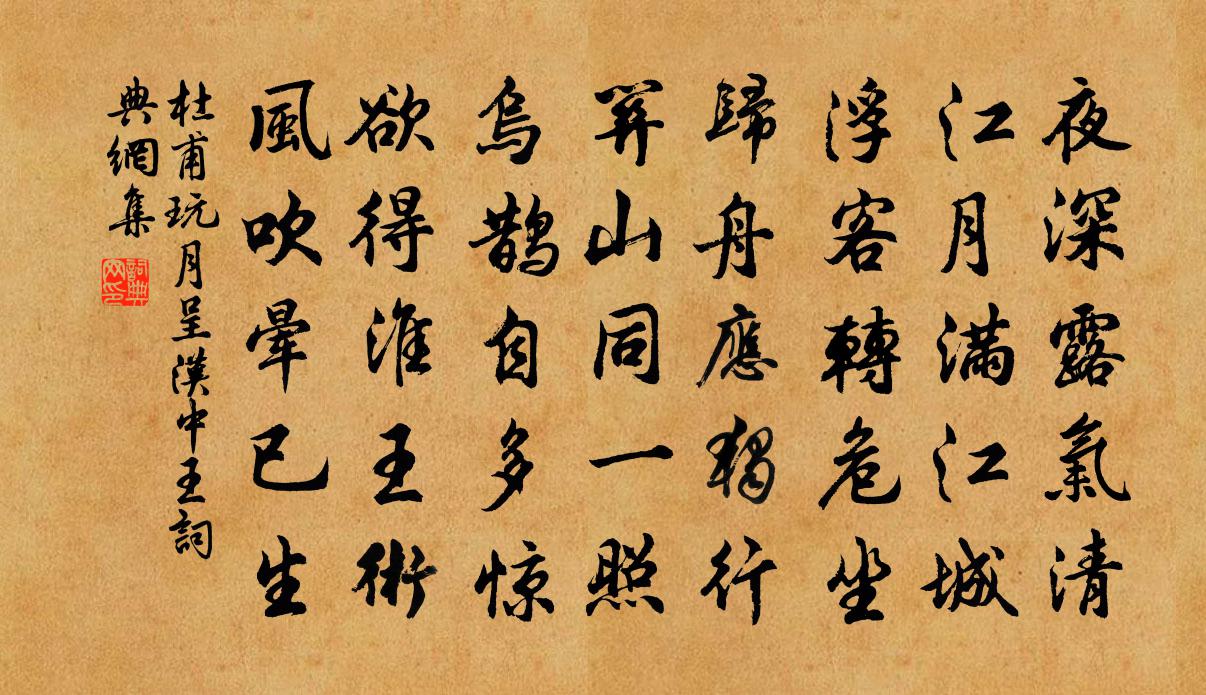 夜深露氣清
江月滿江城
浮客轉危坐
歸舟應獨行
關山同一照
烏鵲自多惊
欲得淮王術
風吹暈已生
杜甫玩月呈漢中王詞
典網集
詞典網印